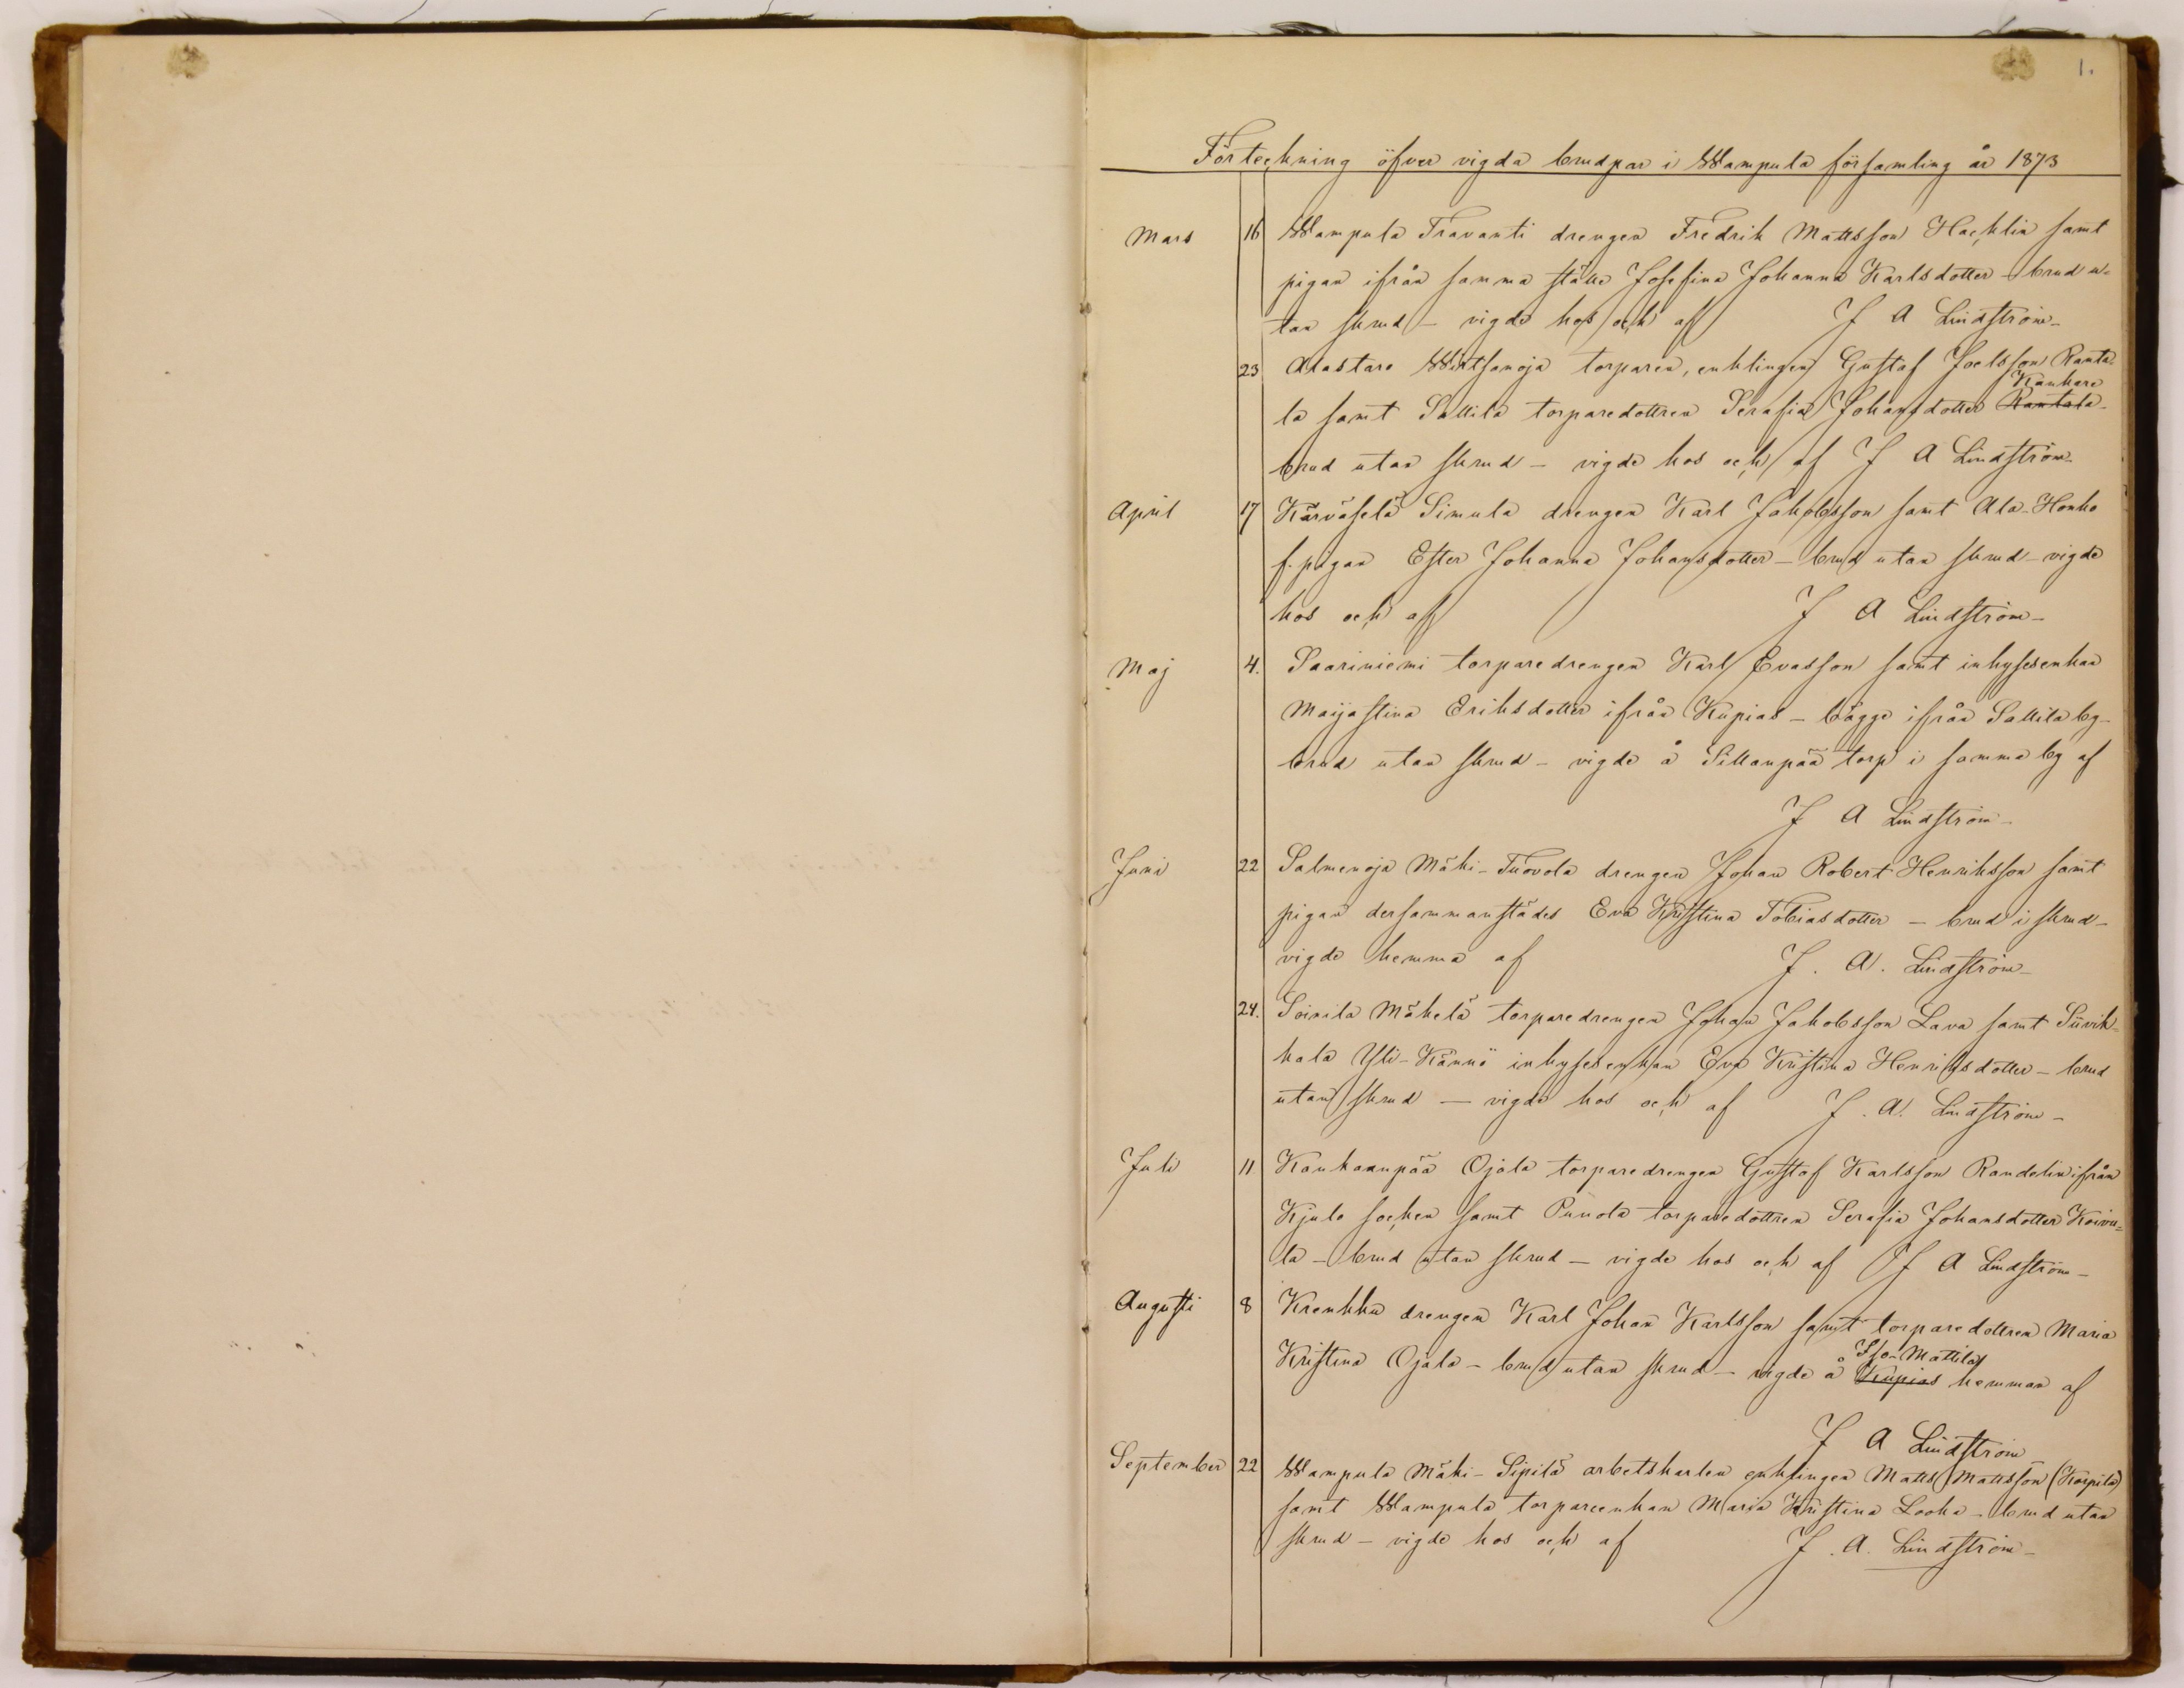 1.
Förteckning öfver vigda brudpar i Wampula församling år 1873
Mars 16 Wampula Travanti drengen Fredrik Mattsson Hacklin samt
pigan ifrån samma ställe Josefina Johanna Karlsdotter – brud u-
tan skrud – vigde hos och af J A Lindström –
23 Alastaro torparen, enklingen Gustaf Joelsson Ranta-
Kankare
la samt Sallila torparedottren Serafia Johansdotter Rantala –
brud utan skrud – vigde hos och af J A Lindström –
April 17 Kärväselä Simula drengen Karl Jakobsson samt Ala-Honko
f. pigan Ester Johanna Johansdotter – brud utan skrud – vigde
hos och af J A Lindström –
Maj 4. Saariniemi torparedrengen Karl Evasson samt inhysesenkan
Maijastina Eriksdotter ifrån Kupias – bägge ifrån Sallila by –
brud utan skrud – vigde å Sillanpää torp i samma by af
J A Lindström –
Juni 22 Salmenoja Mäki-Tuovola drengen Johan Robert Henriksson samt
pigan dersammanstädes Eva Kristina Tobiasdotter – brud i skrud –
vigde hemma af J. A. Lindström –
24. Soinila Mäkelä torparedrengen Johan Jakobsson Lava samt Siivik-
kala Yli-Kännö inhysesenkan Eva Kristina Henriksdotter – brud
utan skrud – vigde hos och af J. A. Lindström –
Juli 11 Kankaanpää Ojala torparedrengen Gustaf Karlsson Randelin ifrån
Kjulo socken samt Punola torparedottren Serafia Johansdotter Koivu-
la – brud utan skrud – vigde hos och af J A Lindström –
Augusti 8 Krenkku drengen Karl Johan Karlsson samt torparedottren Maria
Iso-Mattila
Kristina Ojala – brud utan skrud – vigde å Kupias hemman af
J A Lindström
September 22 Wampula Mäki-Sipilä arbetskarlen enklingen Matts Mattsson (Karpila)
samt Wampula torpareenkan Maria Kristina Looka – brud utan
skrud – vigde hos och af J. A. Lindström –